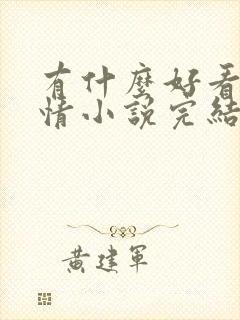 有什麼好看
情小說完結
黃建軍